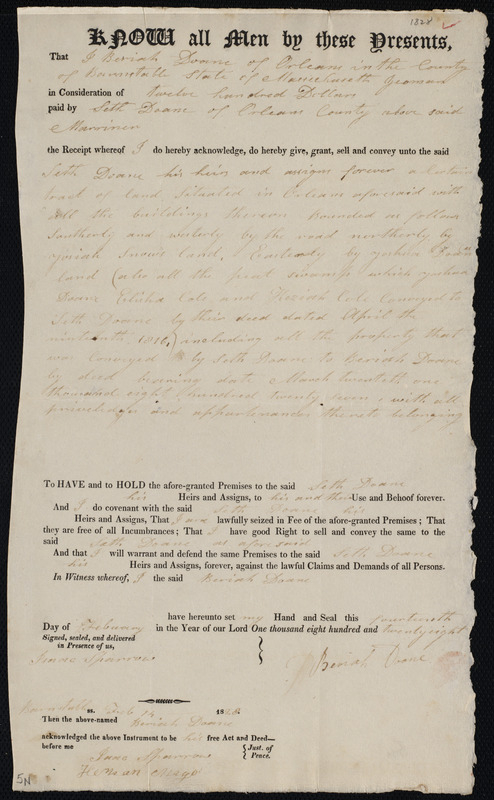 1828
KNOW all Men by these Presents,
That I Beriah Doane of Orleans in the County
of Barnstable State of Massachusetts Yeoman
in Consideration of twelve hundred Dollars
paid by Seth Doane of Orleans County above said
Marriner
the Receipt whereof I do hereby acknowledge, do hereby give, grant, sell and convey unto the said
Seth Doane his heirs and assigns forever a certain
tract of land situated in Orleans aforesaid with
all the buildings thereon bounded as follows
Southerly and westerly by the road northerly by
Josiah Snows land, Easterly by Joshua
land (also all the peat swamp which Joshua
Doane Elisha Cole and Keziah Cole Conveyed to
Seth Doane by their deed dated April the
ninteenth, 1816,) including all the property that
was Conveyed by Seth Doane to Beriah Doane
by deed bearing date March twentieth one
thousand eight hundred twenty seven, with all
and appurtenances thereto belonging
To HAVE and to HOLD the afore-granted Premises to the said Seth Doane
his Heirs and Assigns, to his and their Use and Behoof forever.
And I do covenant with the said Seth Doane his
Heirs and Assigns, That I am lawfully seized in Fee of the afore-granted Premises; That
they are free of all Incumbrances; That I have good Right to sell and convey the same to the
said Seth Doane as afore said
And that I will warrant and defend the same Premises to the said Seth Doane
his Heirs and Assigns, forever, against the lawful Claims and Demands of all Persons.
In Witness whereof, I the said Beriah Doane
have hereunto set my Hand and Seal this fourteenth
Day of February in the Year of our Lord One thousand eight hundred and twenty eight
Signed, sealed, and delivered
in Presence of us,
Isaac Sparrow
Beriah Doane
Barnstable ss. Feb 14 1828
Then the above-named Beriah Doane
acknowledged the above Instrument to be his free Act and Deed—
before me
Just. of
Peace.
Isaac Sparrow
Heman
5N